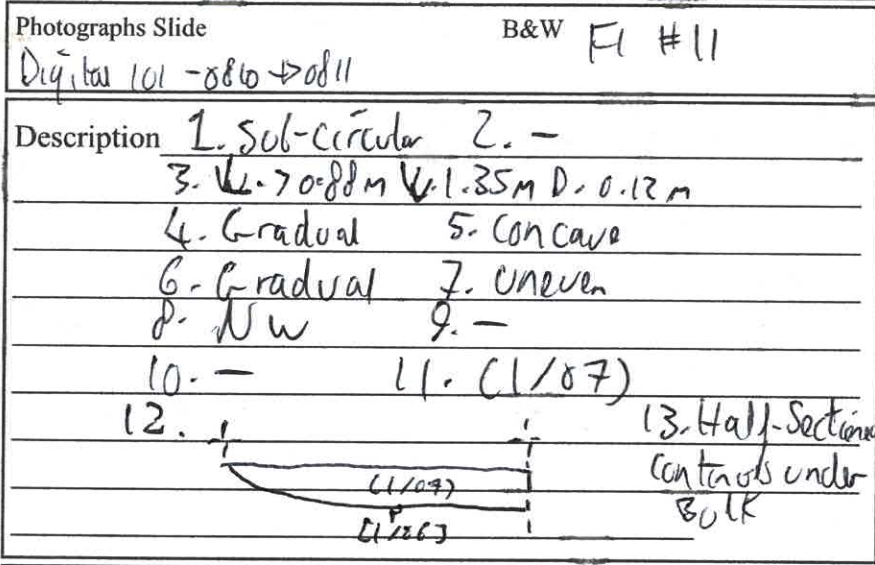 Photographs Slide B&W F1 #11
Digital 101 - 0810 → 0811
Description 1. Sub-Circular 2. -
3. > 0.88m 1.35m D. 0.12m
4. Gradual 5. Concave
6. Gradual 7. Uneven
8. NW 9. -
10. - 11. (1/07)
12. 13. Half-Sectioned
under
(1/07)
[1/06]